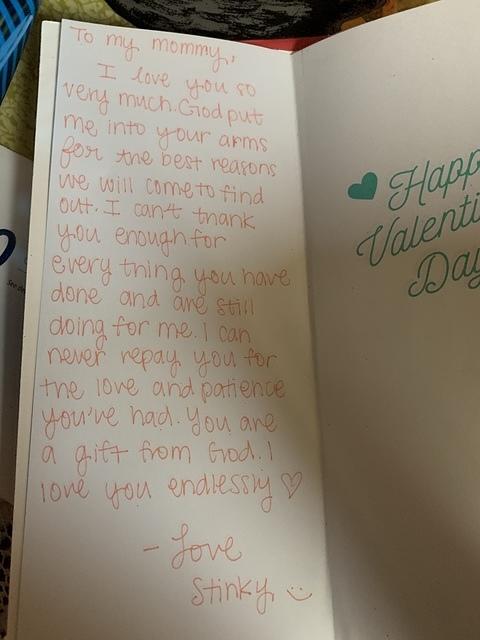 To my mommy,
I love you so
very much. God put
me into your arms
for the best reasons
we will come to find
out. I can't thank
you enough for
every thing you have
done and are still
doing for me. I can
never repay you for
the love and patience
you've had. You are
a gift from God. I
love you endlessly ♡
- Love
Stinky
Happ
Valenti
Day